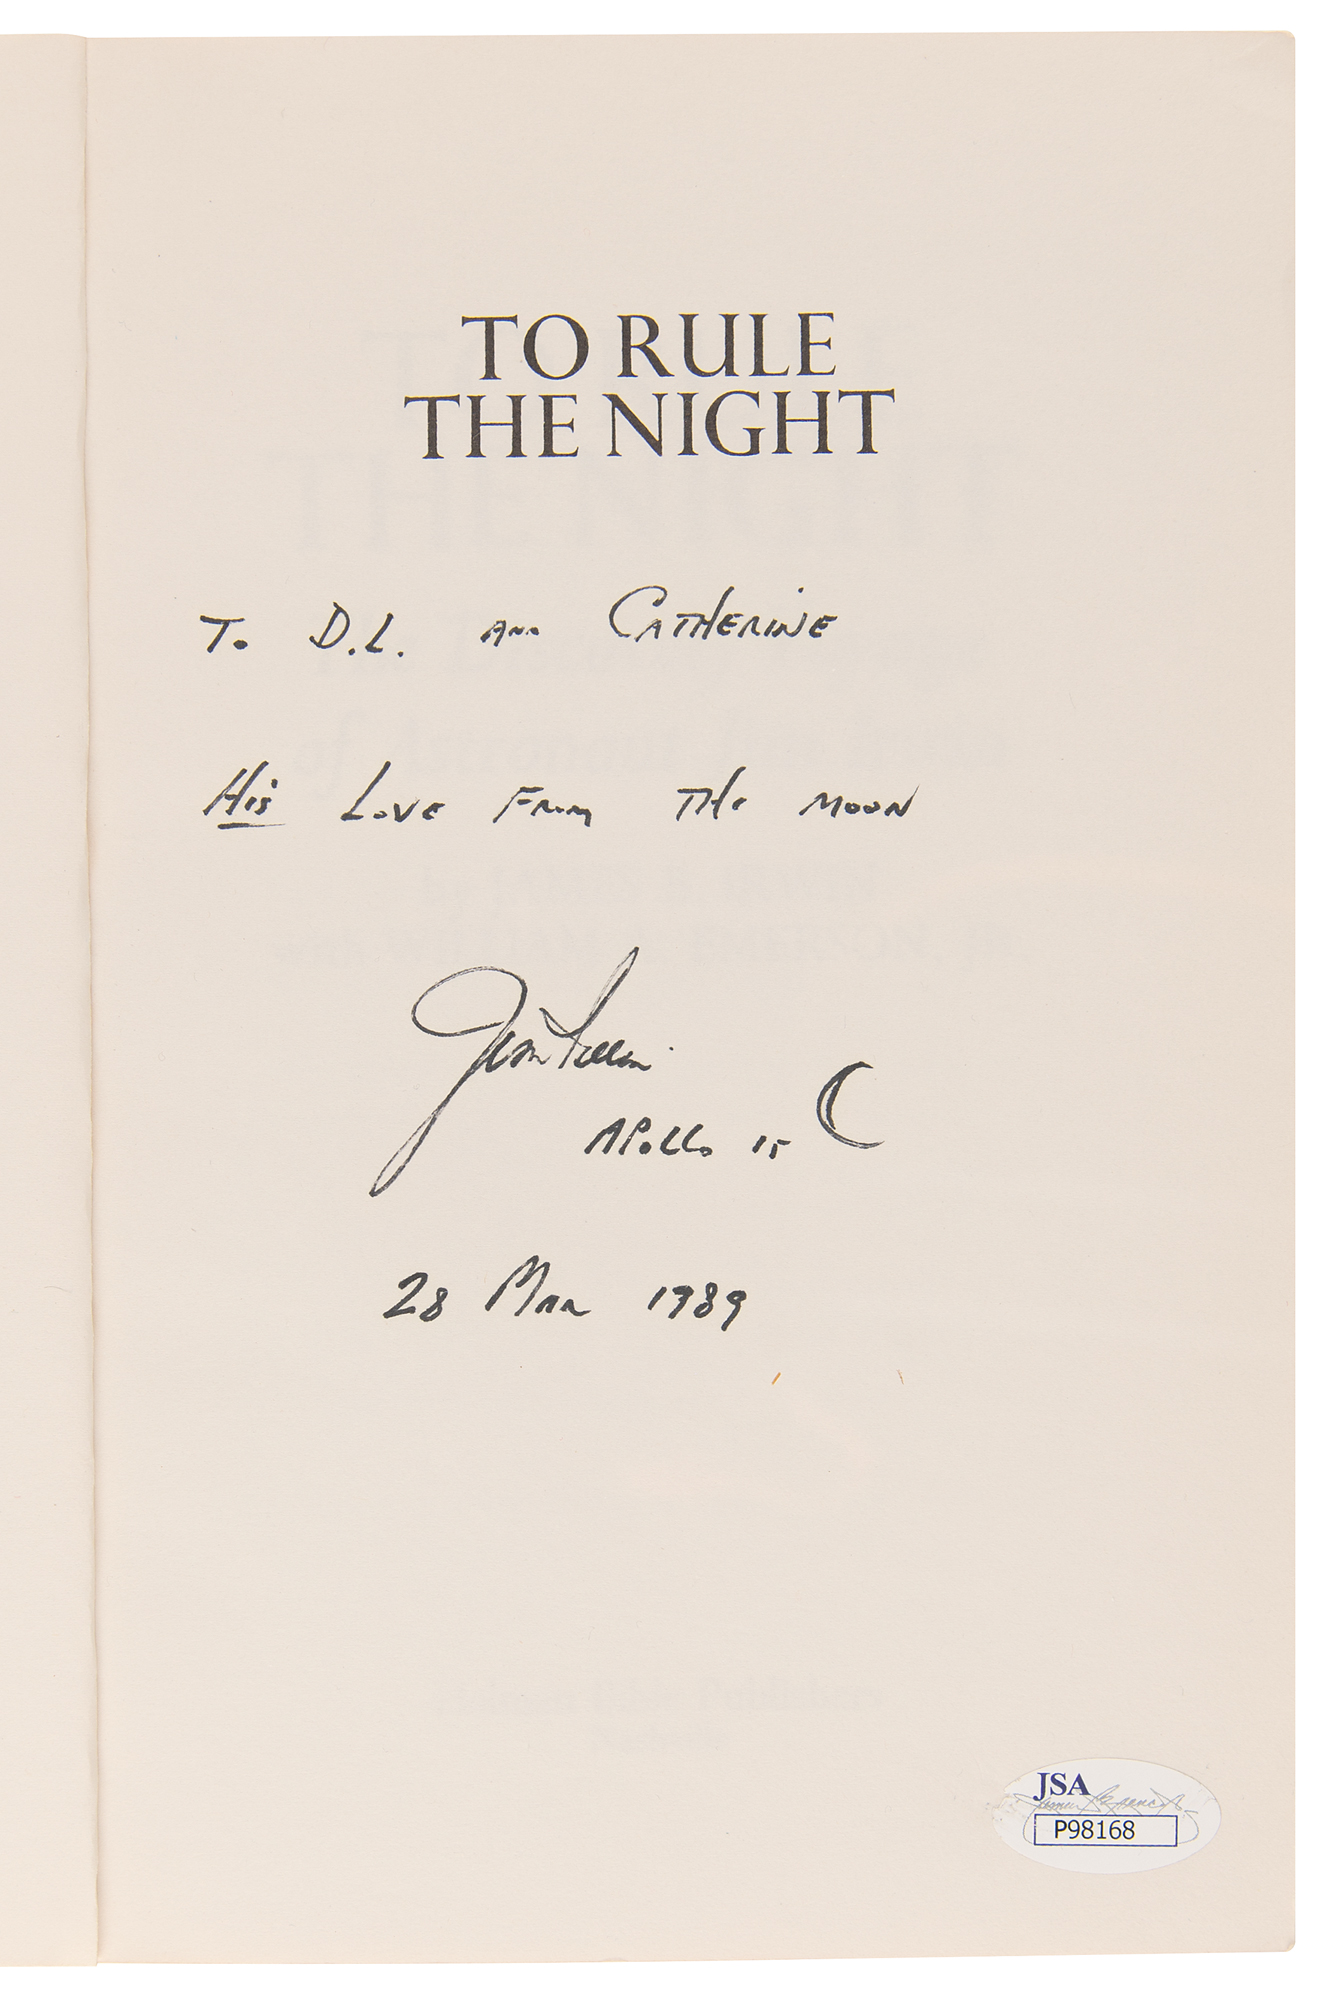 TO RULE
THE NIGHT
To D.L. AND CATHERINE
His LOVE FROM THE MOON
Jim Irwin
APOLLO 15
28 MAR 1989
JSA
P98168